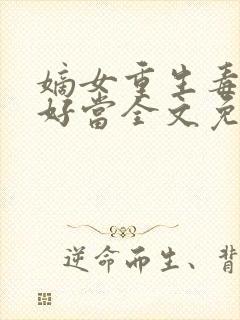 嫡女重生毒
好當全文免
逆命而生、背